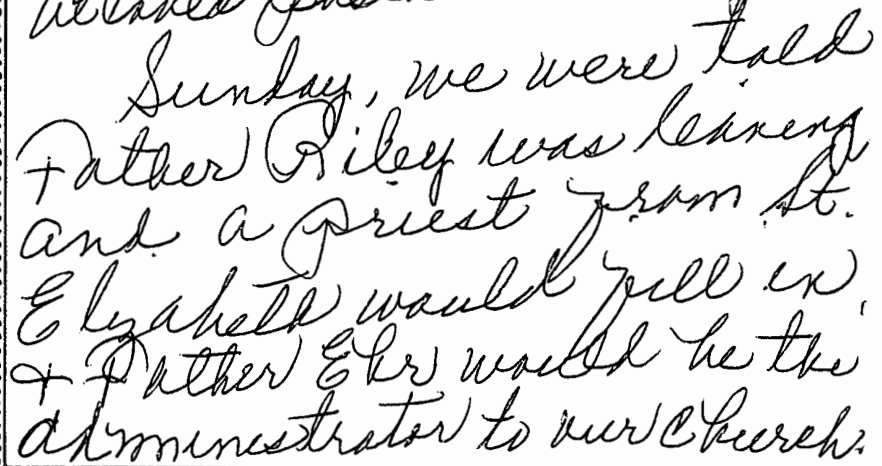 Sunday, we were told
Father Riley was leaving
and a priest from St.
Elizabeth would fill in,
+ Father Ehr would be the
administrator to our church.